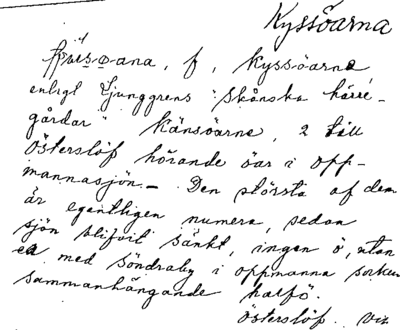 Kyssöarna
f, Kyssöarna
enligt Ljunggrens "Skånska herre-
gårdar" Känsöarne, 2 till
Österslöf hörande öar i Opp-
mannasjön.— Den största af dem
är egentligen numera, sedan
sjön blifvit sänkt, ingen ö, utan
en med Söndraby i Oppmanna socken
sammanhängande halfö.
Österslöf.